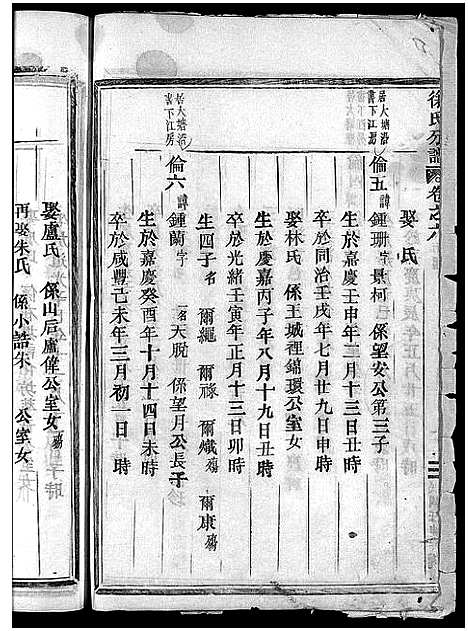 徐氏宗譜
卷之六
娶 氏
居大塘沿
書下江房
倫五 諱鍾珊 字景柯 係望安公第三子
生於嘉慶壬申年三月十三日丑時
卒於同治壬戌年七月廿九日申時
娶林氏 係王城裡錦環公室女
生於慶嘉丙子年八月十九日丑時
卒於光緒壬寅年正月十三日卯時
生四子名 爾繩 爾祿 爾熾殤 爾康殤
居大塘沿
書下江房
倫六 諱鍾蘭 字 一名天脫 係望月公長子
生於嘉慶癸酉年十月十四日未時
卒於咸豐己未年三月初一日 時
娶盧氏 係山后盧偉公室女
再娶朱氏 係小誥朱 公室女